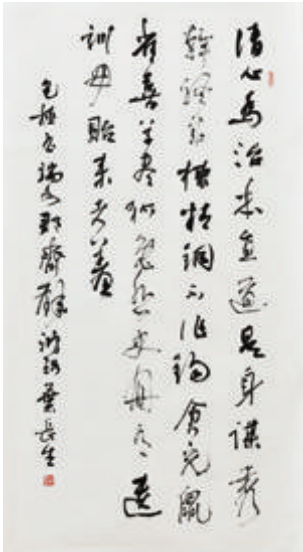 清心為治本直道是身謀秀
幹終成棟精鋼不作鉤倉充鼠
雀喜草盡狐兔愁史冊有遺
訓毋貽來者羞
包拯書端州郡齋壁 葉長生